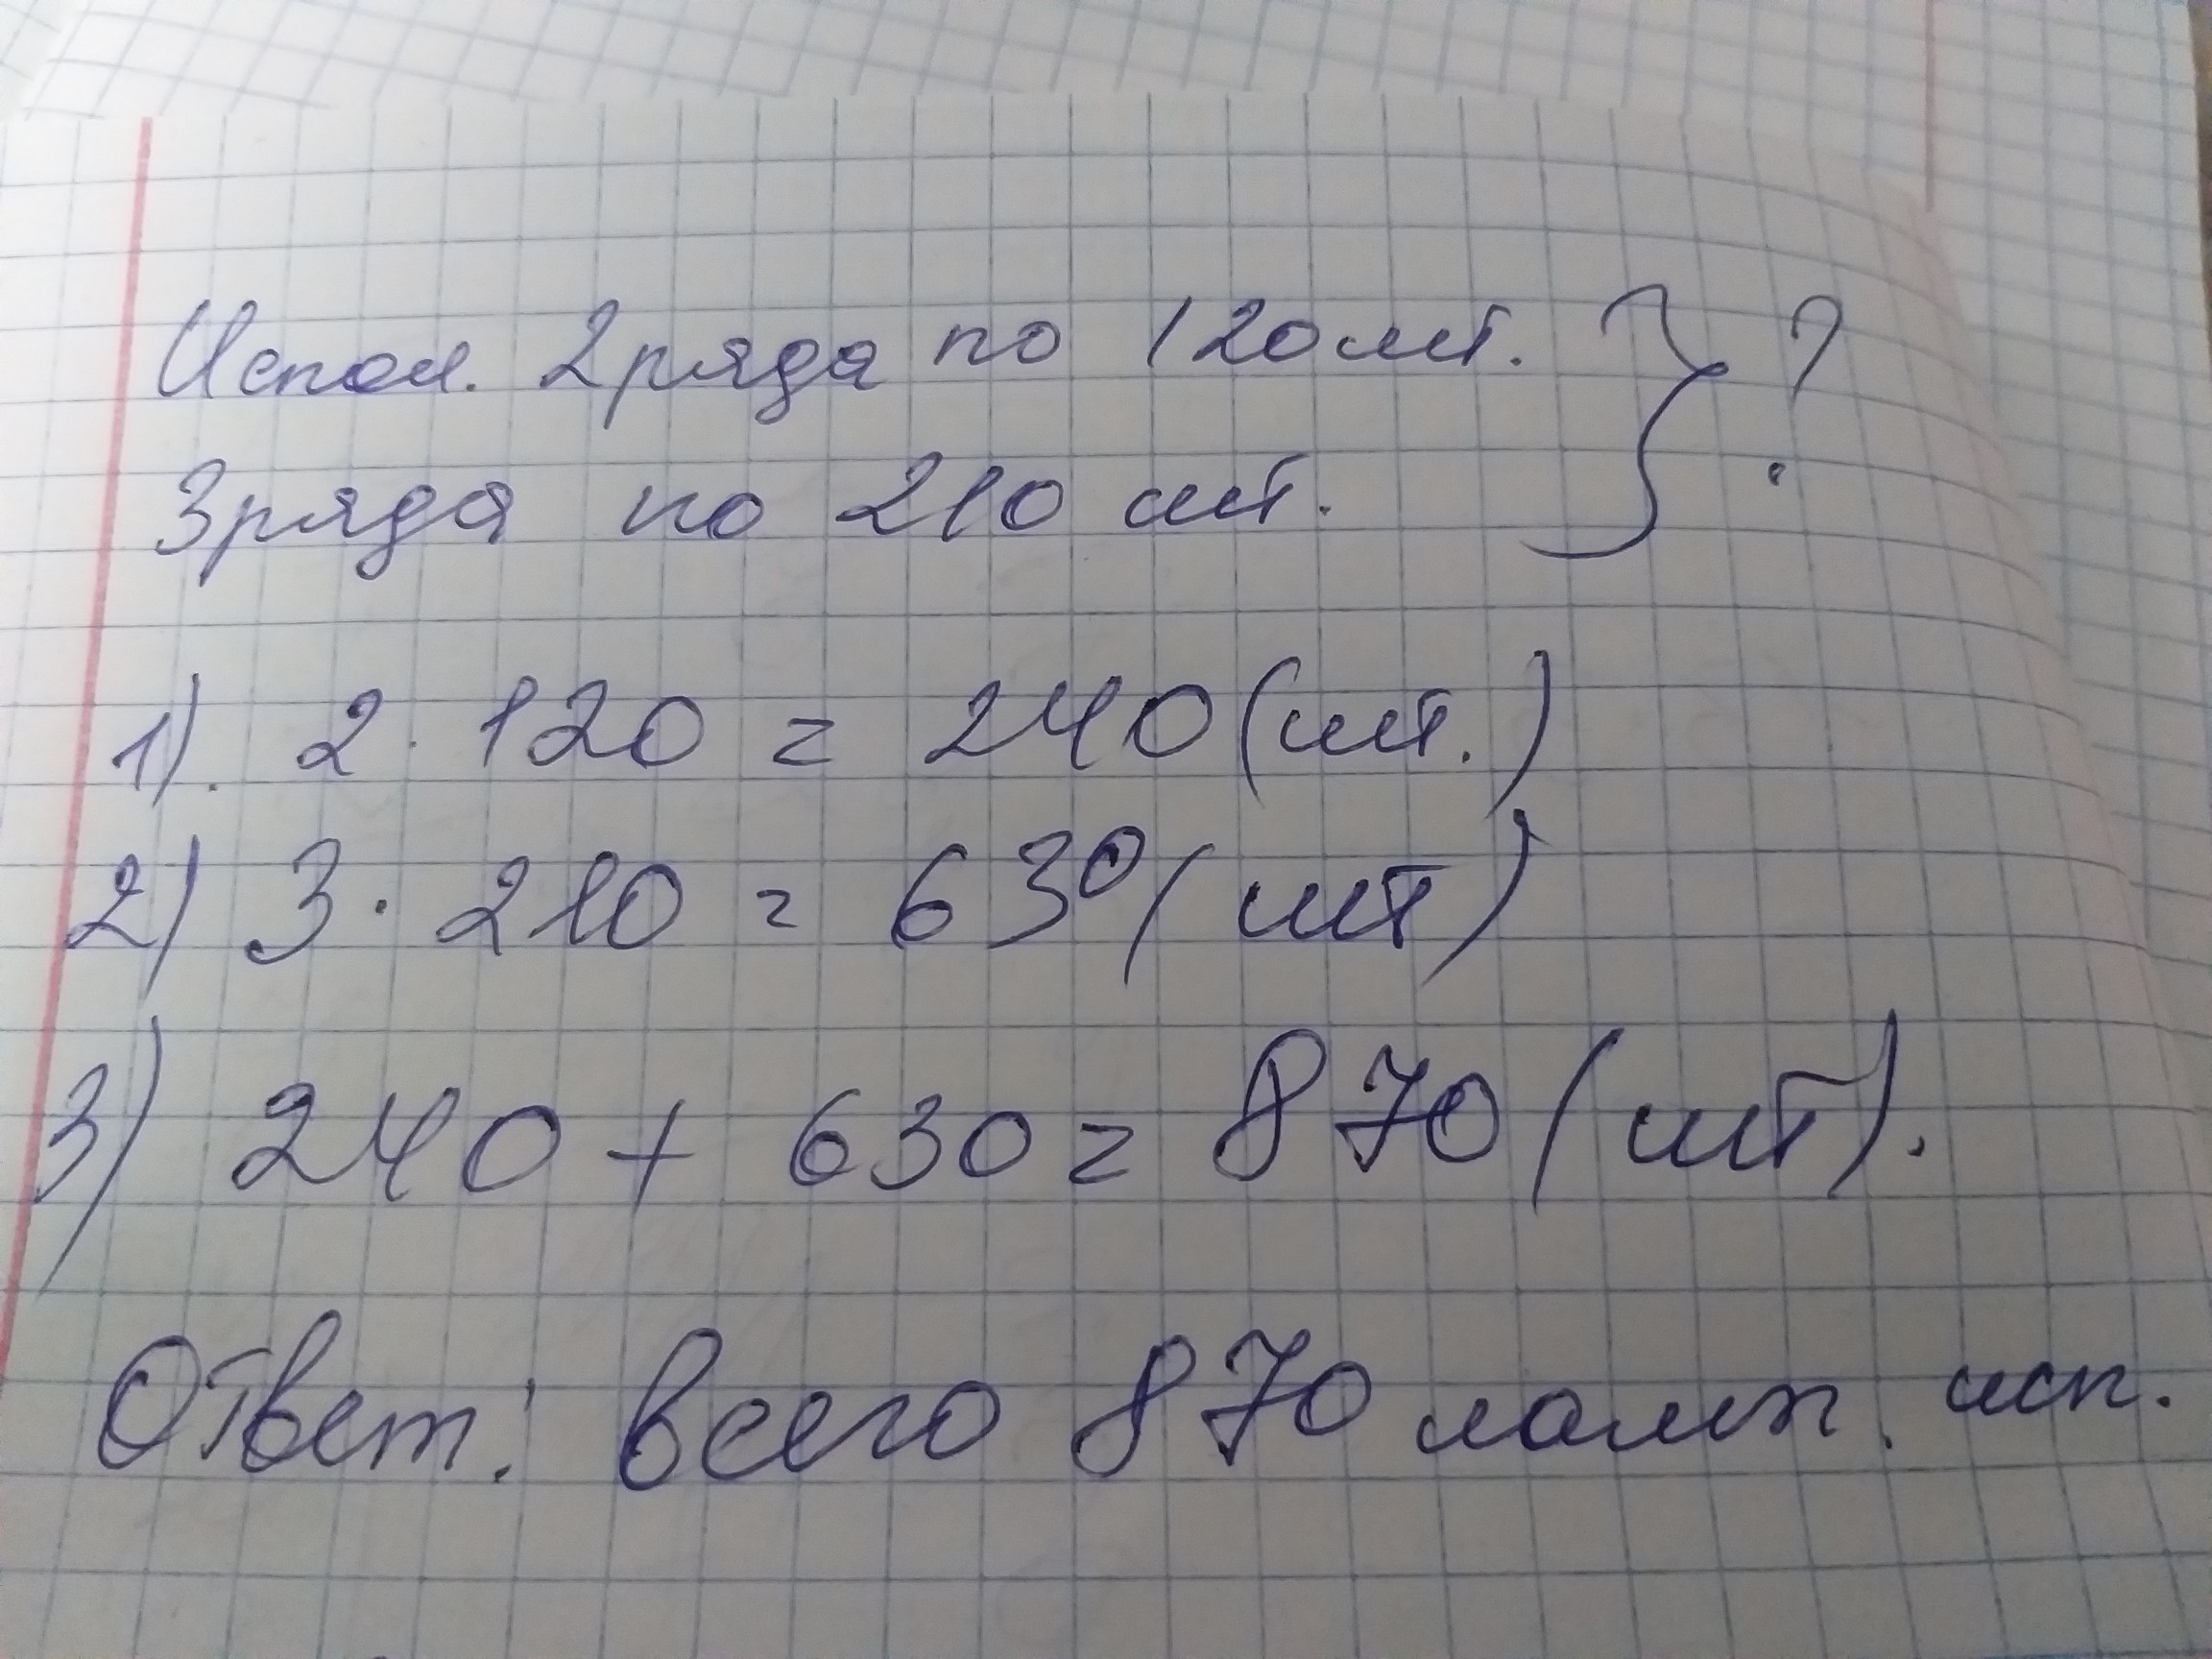 Испол. 2 ряда по 120 шт. } ?
3 ряда по 210 шт.
1). 2 · 120 = 240 (шт.)
2) 3 · 210 = 630 (шт)
3) 240 + 630 = 870 (шт).
Ответ: всего 870 ламп. исп.